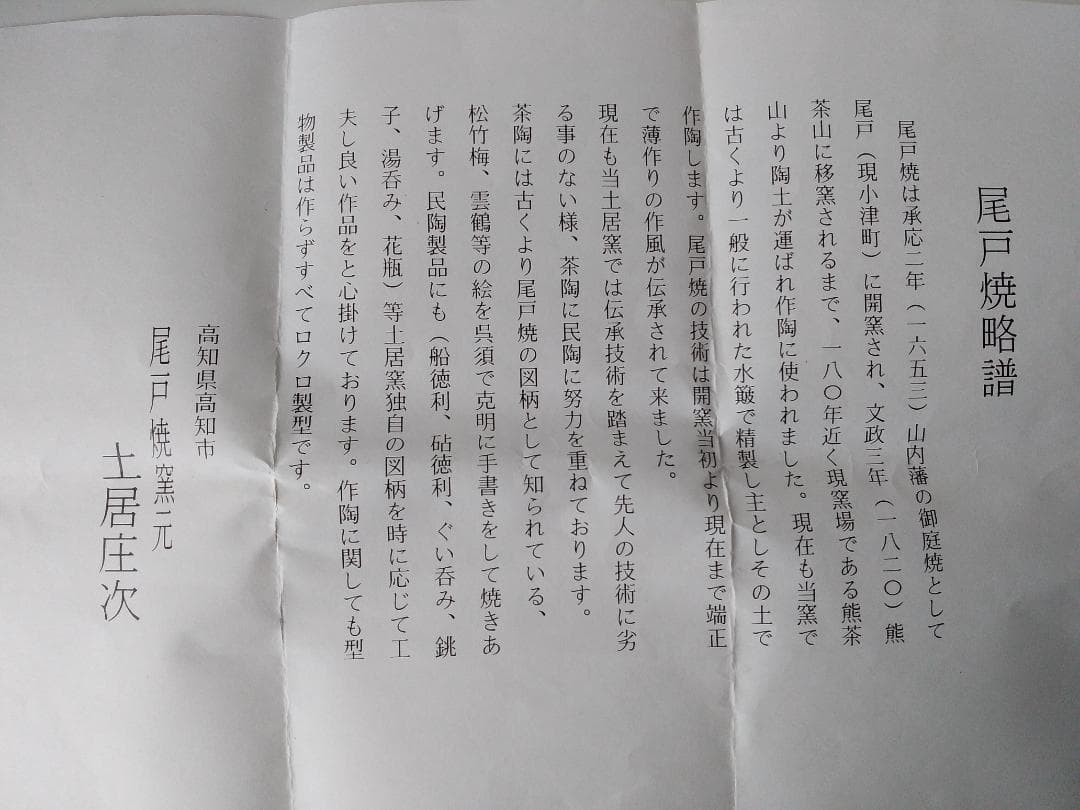 尾戸焼略譜
尾戸焼は承応二年（一六五三）山内藩の御庭焼として
尾戸（現小津町）に開窯され、文政三年（一八二〇）熊
茶山に移窯されるまで、一八〇年近く現窯場である熊茶
山より陶土が運ばれ作陶に使われました。現在も当窯で
は古くより一般に行われた水簸で精製し主としその土で
作陶します。尾戸焼の技術は開窯当初より現在まで端正
で薄作りの作風が伝承されて来ました。
現在も当土居窯では伝承技術を踏まえて先人の技術に劣
る事のない様、茶陶に民陶に努力を重ねております。
茶陶には古くより尾戸焼の図柄として知られている、
松竹梅、雲鶴等の絵を呉須で克明に手書きをして焼きあ
げます。民陶製品にも（船徳利、砧徳利、ぐい呑み、銚
子、湯呑み、花瓶）等土居窯独自の図柄を時に応じて工
夫し良い作品をと心掛けております。作陶に関しても型
物製品は作らずすべてロクロ製型です。
高知県高知市
尾戸焼窯元
土居庄次